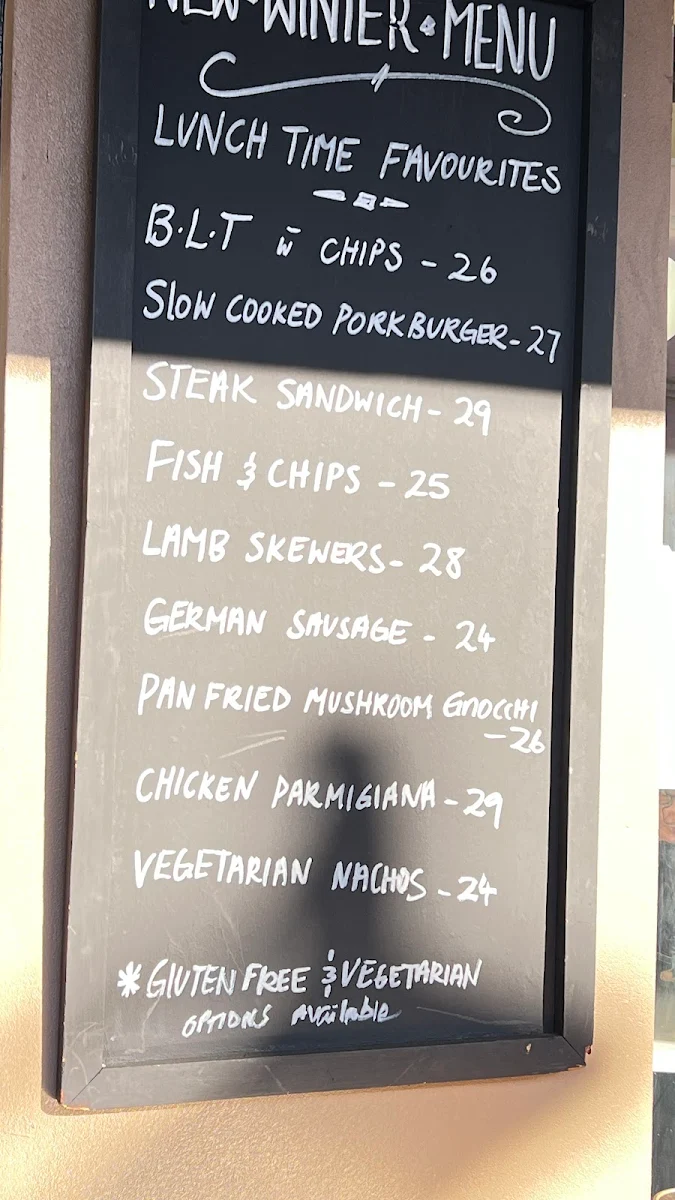 NEW WINTER MENU
LUNCH TIME FAVOURITES
B.L.T w̄ CHIPS - 26
SLOW COOKED PORK BURGER - 27
STEAK SANDWICH - 29
FISH & CHIPS - 25
LAMB SKEWERS - 28
GERMAN SAUSAGE - 24
PAN FRIED MUSHROOM GNOCCHI
- 26
CHICKEN PARMIGIANA - 29
VEGETARIAN NACHOS - 24
* GLUTEN FREE & VEGETARIAN
OPTIONS available